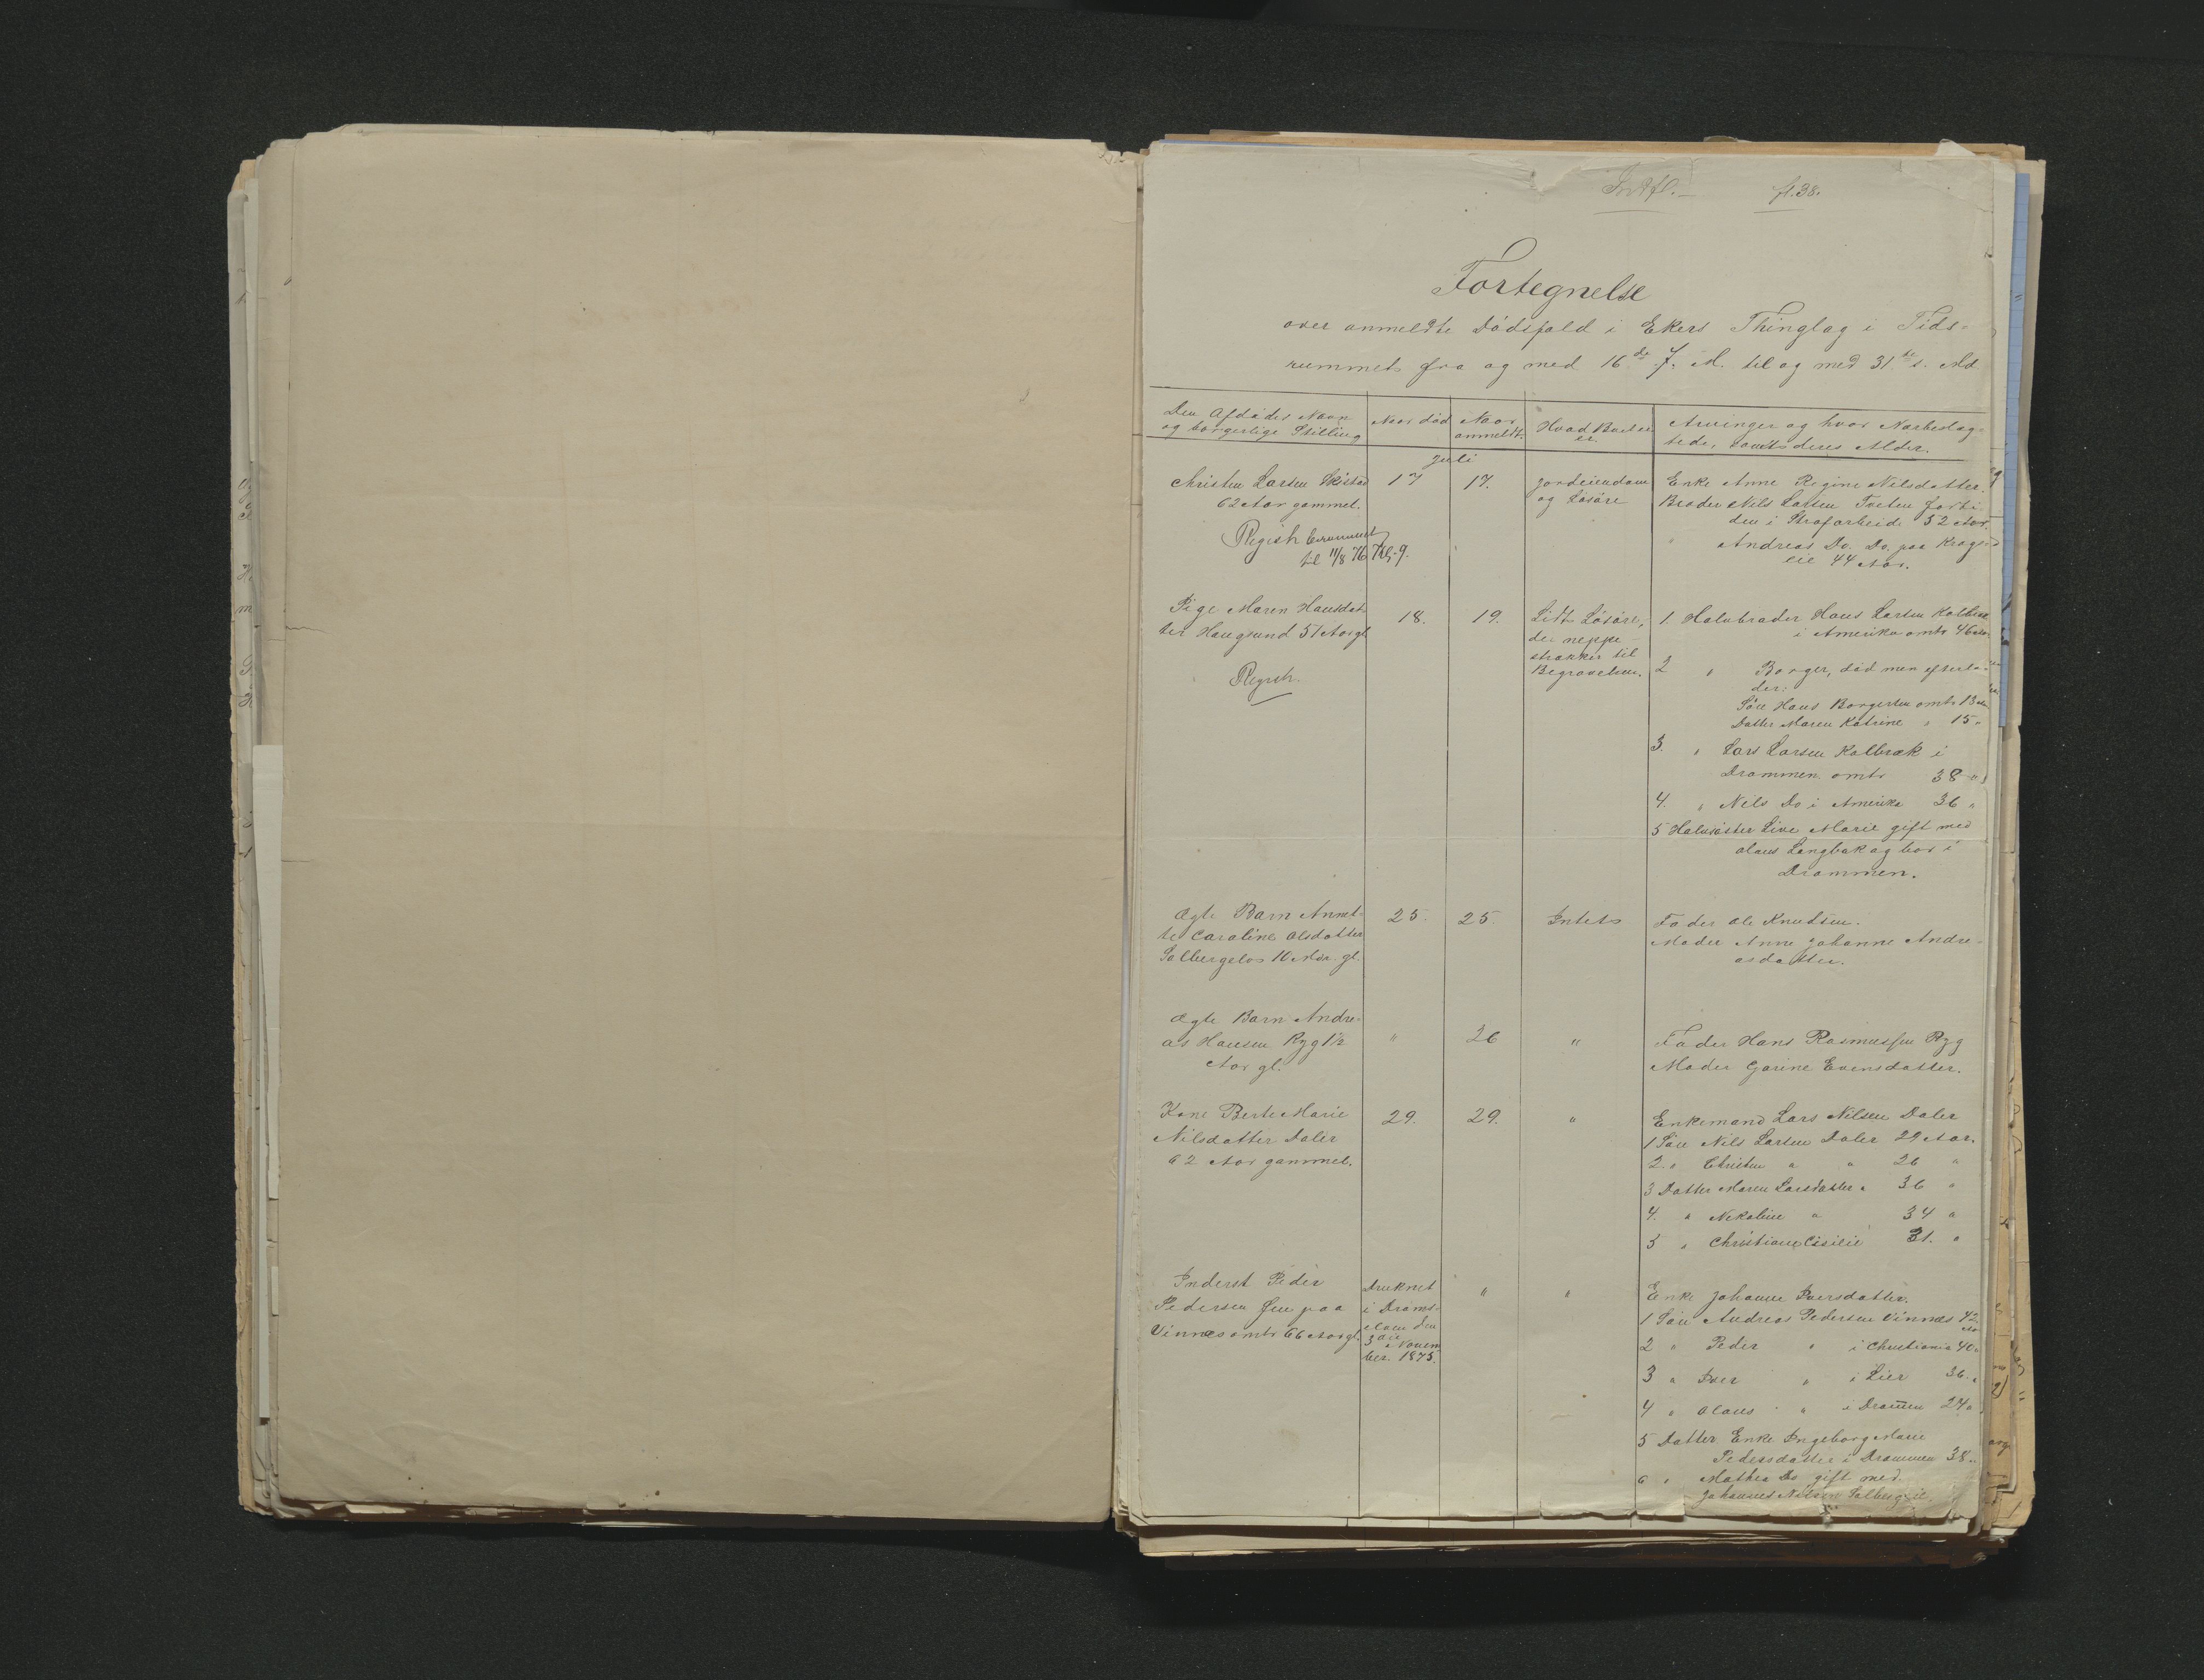 Indfl.- fl. 38.
Fortegnelse
over anmeldte Dödsfald i Ekers Thinglag i Tids-
rummet fra og med 16de f. M. til og med 31te s. Md
Den Afdødes Navn
og borgerlige Stilling
Naar död
Naar
anmeldt.
Hvad Boet eier
er.
Arvinger og hvor Nærbeslæg-
tede, samt deres Alder.
Juli
Christen Larsen Skistad
62 Aar gammel.
Regist. Commun.
til 11/8 76
17
17.
Jordeiendom
og Lösöre
Enke Anne Regine Nilsdatter
Broder Nils Larsen Tveten for ti-
den i Strafarbeide 52 Aar.
Andreas Do. Do. paa Krags-
eie 44 Aar.
Pige Maren Hansdat-
ter Haugsund 51 Aar gl.
Regist.
18.
19.
Lidt Lösöre,
der neppe
strækker til
Begravelsen.
1 Halvbroder Hans Larsen Kolbræk
i Amerika omtr 46 Aar
2 " Borger, död men efterla-
der:
Sön Hans Borgersen omtr 13 Aar
Datter Maren Katrine " 15 "
3. " Lars Larsen Kolbræk i
Drammen omtr 38 "
4. " Nils Do i Amerika 36 "
5 Halvsöster Live Marie gift med
Olaus Langbak og bor i
Drammen.
Ægte Barn Annet-
te Caroline Olsdatter
Solbergelos 10 Mdr. gl.
25.
25.
Intet
Fader Ole Knudsen.
Moder Anne Johanne Andre-
asdatter.
Ægte Barn Andre-
as Hansen Ryg 1½
Aar gl.
"
26
"
Fader Hans Rasmussen Ryg
Moder Gorine Evensdatter.
Kone Berte Marie
Nilsdatter Daler
62 Aar gammel.
29.
29.
"
Enkemand Lars Nilsen Daler
1 Sön Nils Larsen Daler 29 Aar.
2. " Christen " " 26 "
3 Datter Maren Larsdatter " 36 "
4. " Nikoline " 34 "
5 " Christiane Cisilie 31. "
Inderst Peder
Pedersen Jen paa
Vinnæs omtr 66 Aar gl.
Druknet
i Drams-
elven den
3die Novem
ber 1875.
"
"
Enke Johanne Iversdatter.
1 Sön Andreas Pedersen Vinnæs 42
Aar
2 " Peder " i Christiania 40 "
3 " Iver " i Lier 36. "
4 " Olaus " i Dramen 24 "
5 Datter Enke Ingeborg Marie
Pedersdatter i Drammen 38 "
6 " Mathea Do gift med
Johannes Nilsen Solbergeie